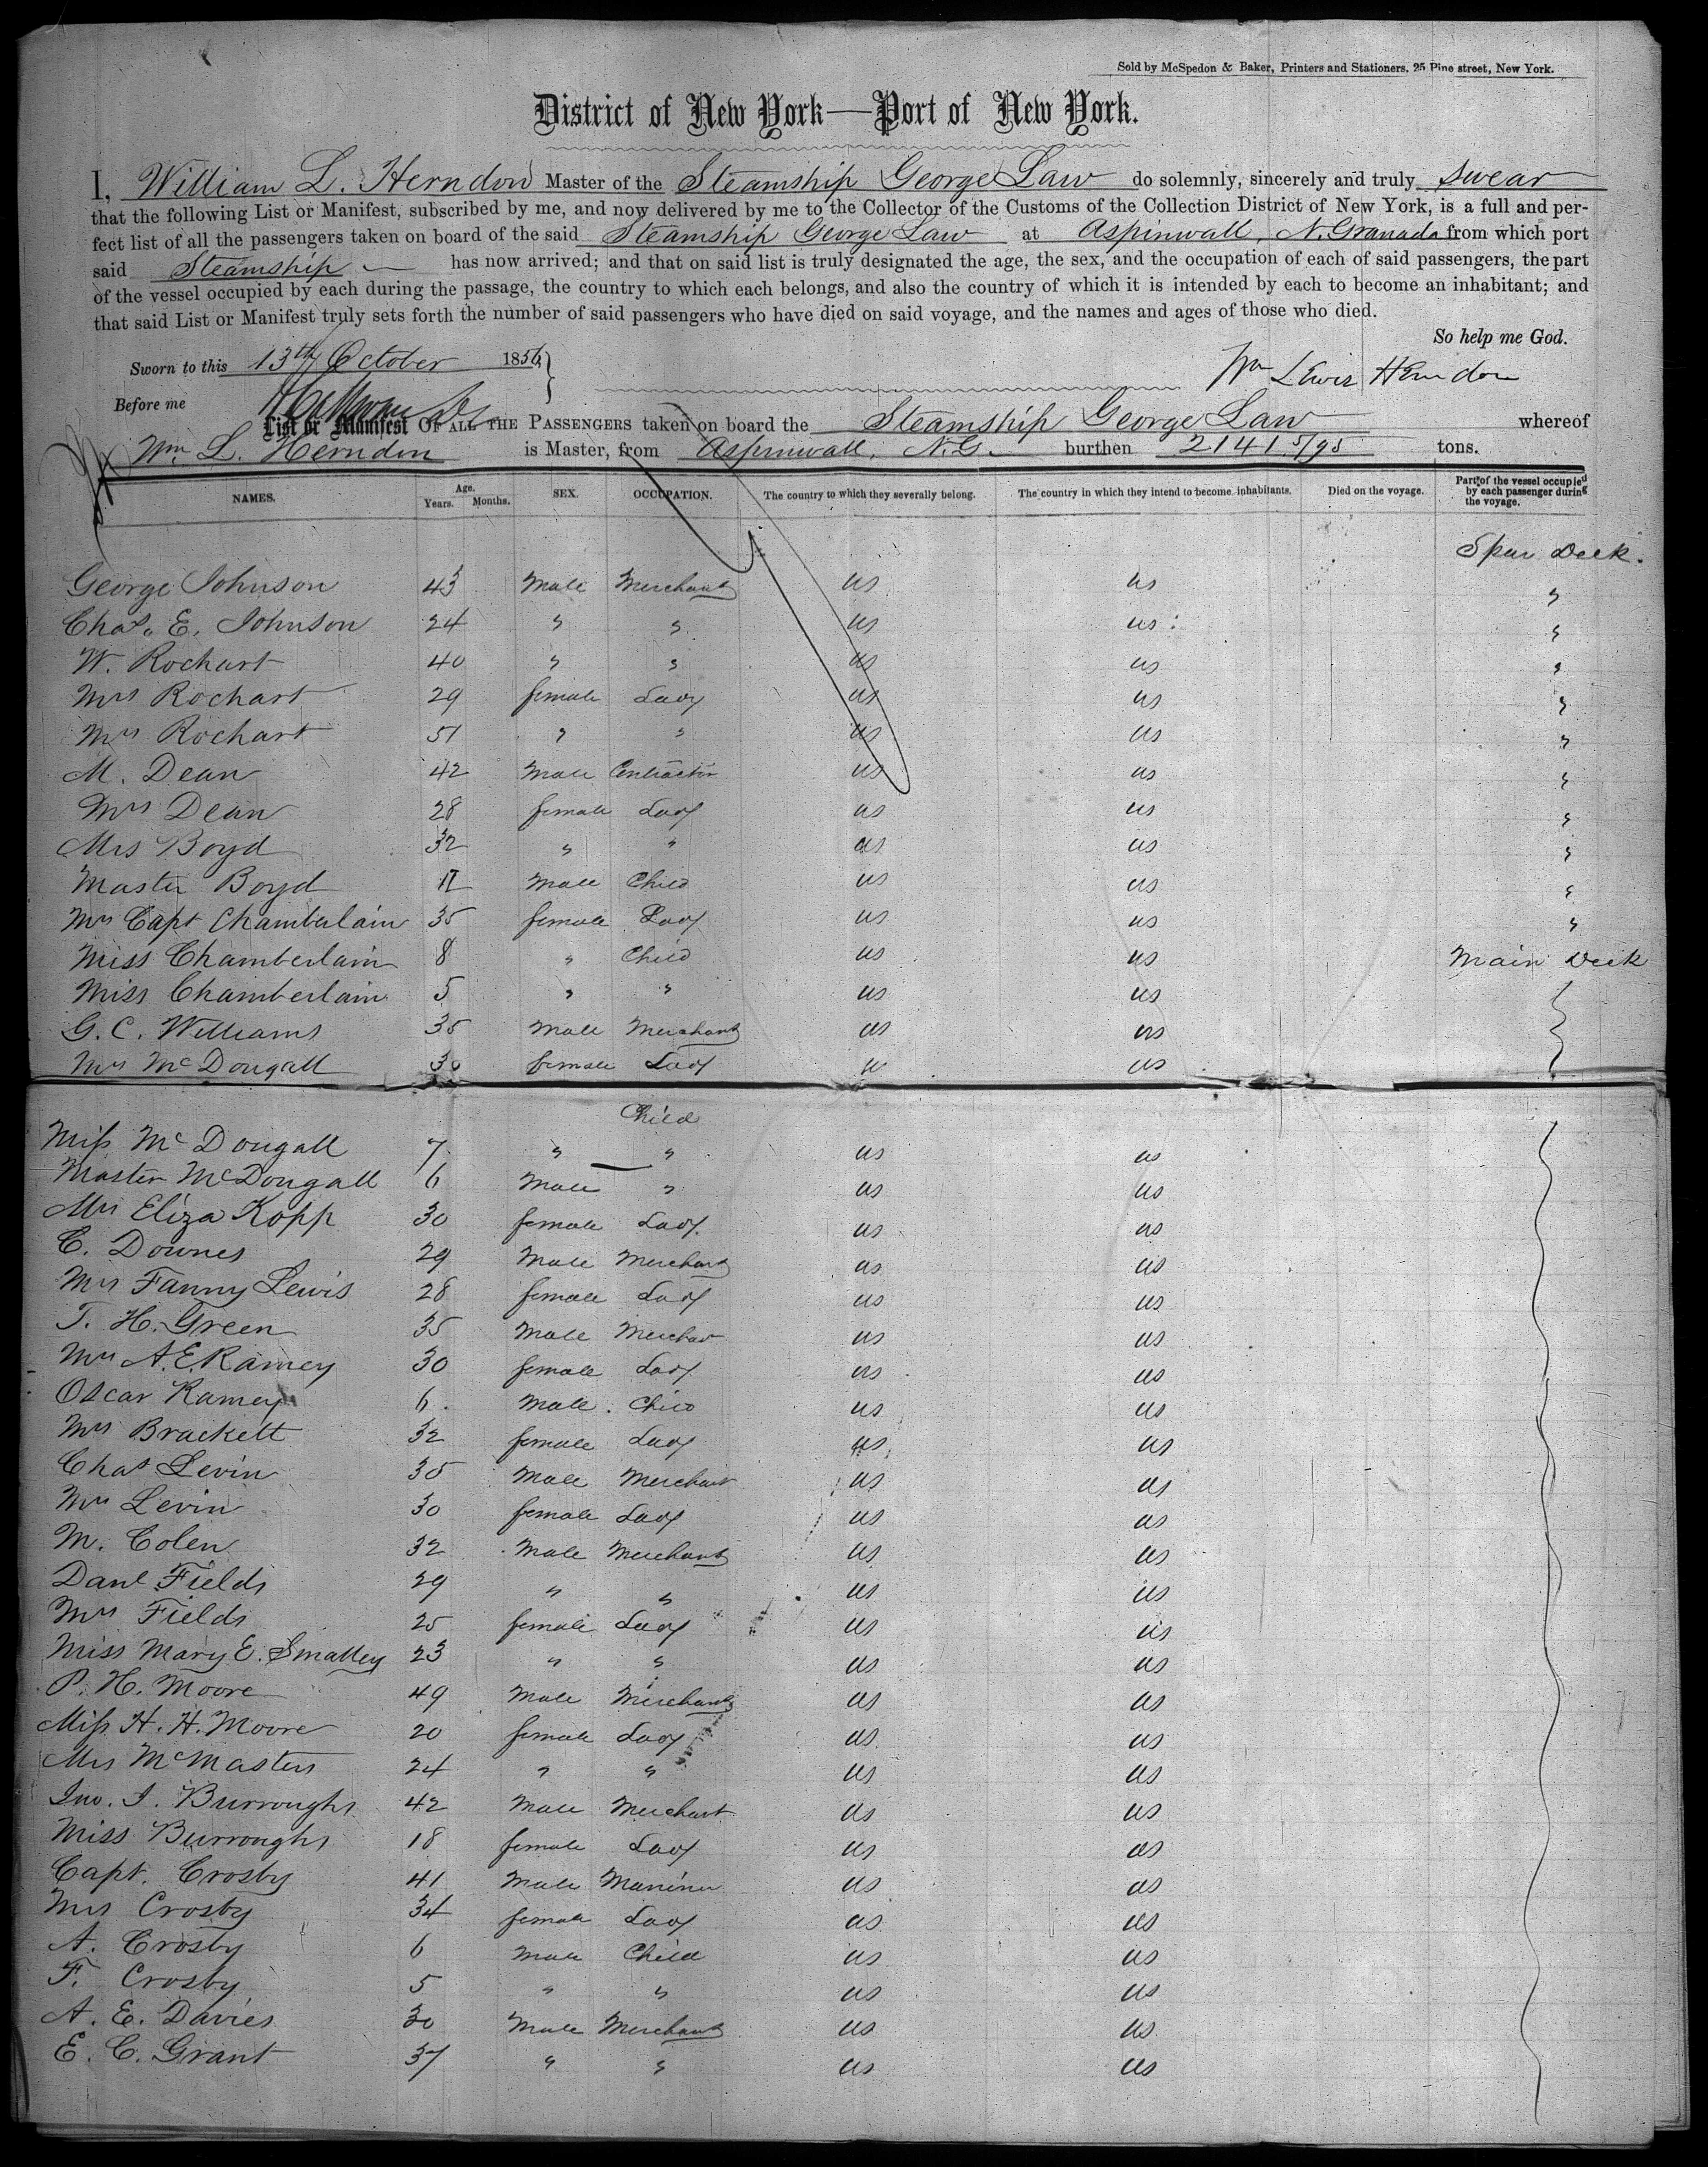 Sold by McSpedon & Baker, Printers and Stationers. 25 Pine street, New York.
District of New York—Port of New York.
I, William L. Herndon Master of the Steamship George Law do solemnly, sincerely and truly swear
that the following List or Manifest, subscribed by me, and now delivered by me to the Collector of the Customs of the Collection District of New York, is a full and per-
fect list of all the passengers taken on board of the said Steamship George Law at Aspinwall, N. Granada from which port
said Steamship has now arrived; and that on said list is truly designated the age, the sex, and the occupation of each of said passengers, the part
of the vessel occupied by each during the passage, the country to which each belongs, and also the country of which it is intended by each to become an inhabitant; and
that said List or Manifest truly sets forth the number of said passengers who have died on said voyage, and the names and ages of those who died.
So help me God.
Sworn to this 13th October 1856
Wm Lewis Herndon
Before me
List or Manifest OF ALL THE PASSENGERS taken on board the Steamship George Law whereof
Wm. L. Herndon is Master, from Aspinwall, N.G. burthen 2141 5/95 tons.
NAMES. Age. Years. Months. SEX. OCCUPATION. The country to which they severally belong. The country in which they intend to become inhabitants. Died on the voyage. Part of the vessel occupied by each passenger during the voyage.
Spar Deck.
George Johnson 43 Male Merchant us us "
Chas. E. Johnson 24 " " us us "
W. Rochart 40 " " us us "
Mrs Rochart 29 female Lady us us "
Mrs Rochart 51 " " us us "
M. Dean 42 Male Contractor us us "
Mrs Dean 28 female Lady us us "
Mrs Boyd 32 " " us us "
Master Boyd 11 Male Child us us "
Mrs Capt Chamberlain 35 female Lady us us "
Miss Chamberlain 8 " Child us us Main Deck
Miss Chamberlain 5 " " us us
G. C. Williams 35 Male Merchant us us
Mrs McDougall 30 female Lady us us
Child
Miss McDougall 7 " " us us
Master McDougall 6 Male " us us
Mrs Eliza Kopp 30 female Lady us us
C. Downes 29 Male Merchant us us
Mrs Fanny Lewis 28 female Lady us us
T. H. Green 35 Male Merchant us us
Mrs A. E. Ramey 30 female Lady us us
Oscar Ramey 6 Male Child us us
Mrs Brackett 32 female Lady us us
Chas Levin 35 Male Merchant us us
Mrs Levin 30 female Lady us us
M. Colen 32 Male Merchant us us
Danl Fields 29 " " us us
Mrs Fields 25 female Lady us us
Miss Mary E. Smalley 23 " " us us
P. H. Moore 49 Male Merchant us us
Miss H. H. Moore 20 female Lady us us
Mrs McMasters 24 " " us us
Jno. I. Burroughs 42 Male Merchant us us
Miss Burroughs 18 female Lady us us
Capt. Crosby 41 Male Mariner us us
Mrs Crosby 34 female Lady us us
A. Crosby 6 Male Child us us
F. Crosby 5 " " us us
A. E. Davies 30 Male Merchant us us
E. C. Grant 37 " " us us